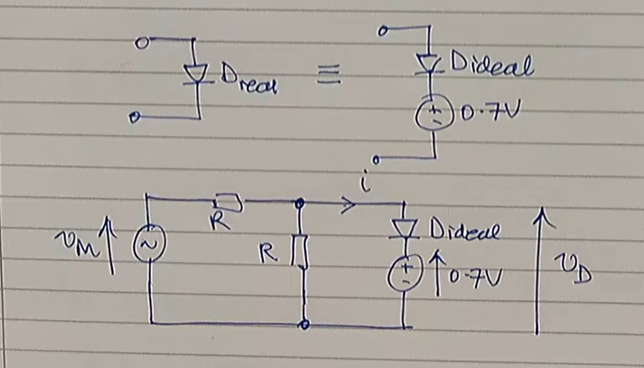 Dreal ≡ Dideal
+
- 0.7V
i
R
Dideal
vM ~ R + 0.7V vD
-